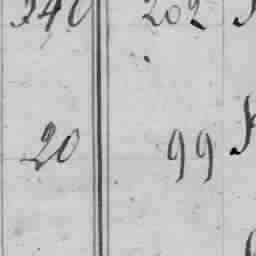 340 202
20 99